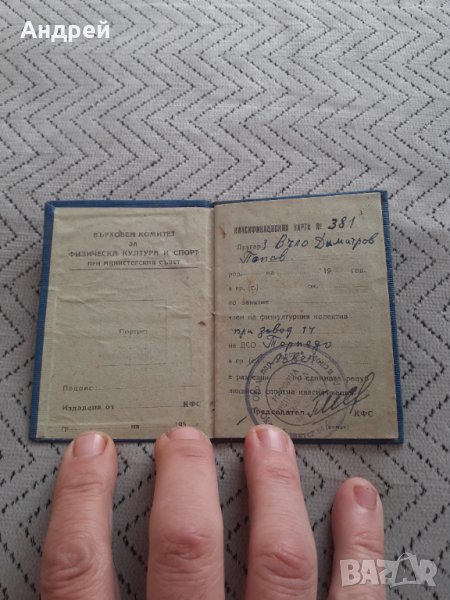 Андрей
ВЪРХОВЕН КОМИТЕТ
ЗА
ФИЗИЧЕСКА КУЛТУРА И СПОРТ
ПРИ МИНИСТЕРСКИЯ СЪВЕТ
Портрет
Подпис:
Издадена от КФС
195
КЛАСИФИКАЦИОННА КАРТА № 381
Другар Вълю Димитров
Попов
род. на 19 год.
в гр. (с.) ок.
по занятие
член на физкултурния колектив
при завод 14
на ДСО Торпедо
в гр. (с.)
е разрешен по единната репуб-
ликанска спортна класификация
Председател КФС
BAZAR
bg